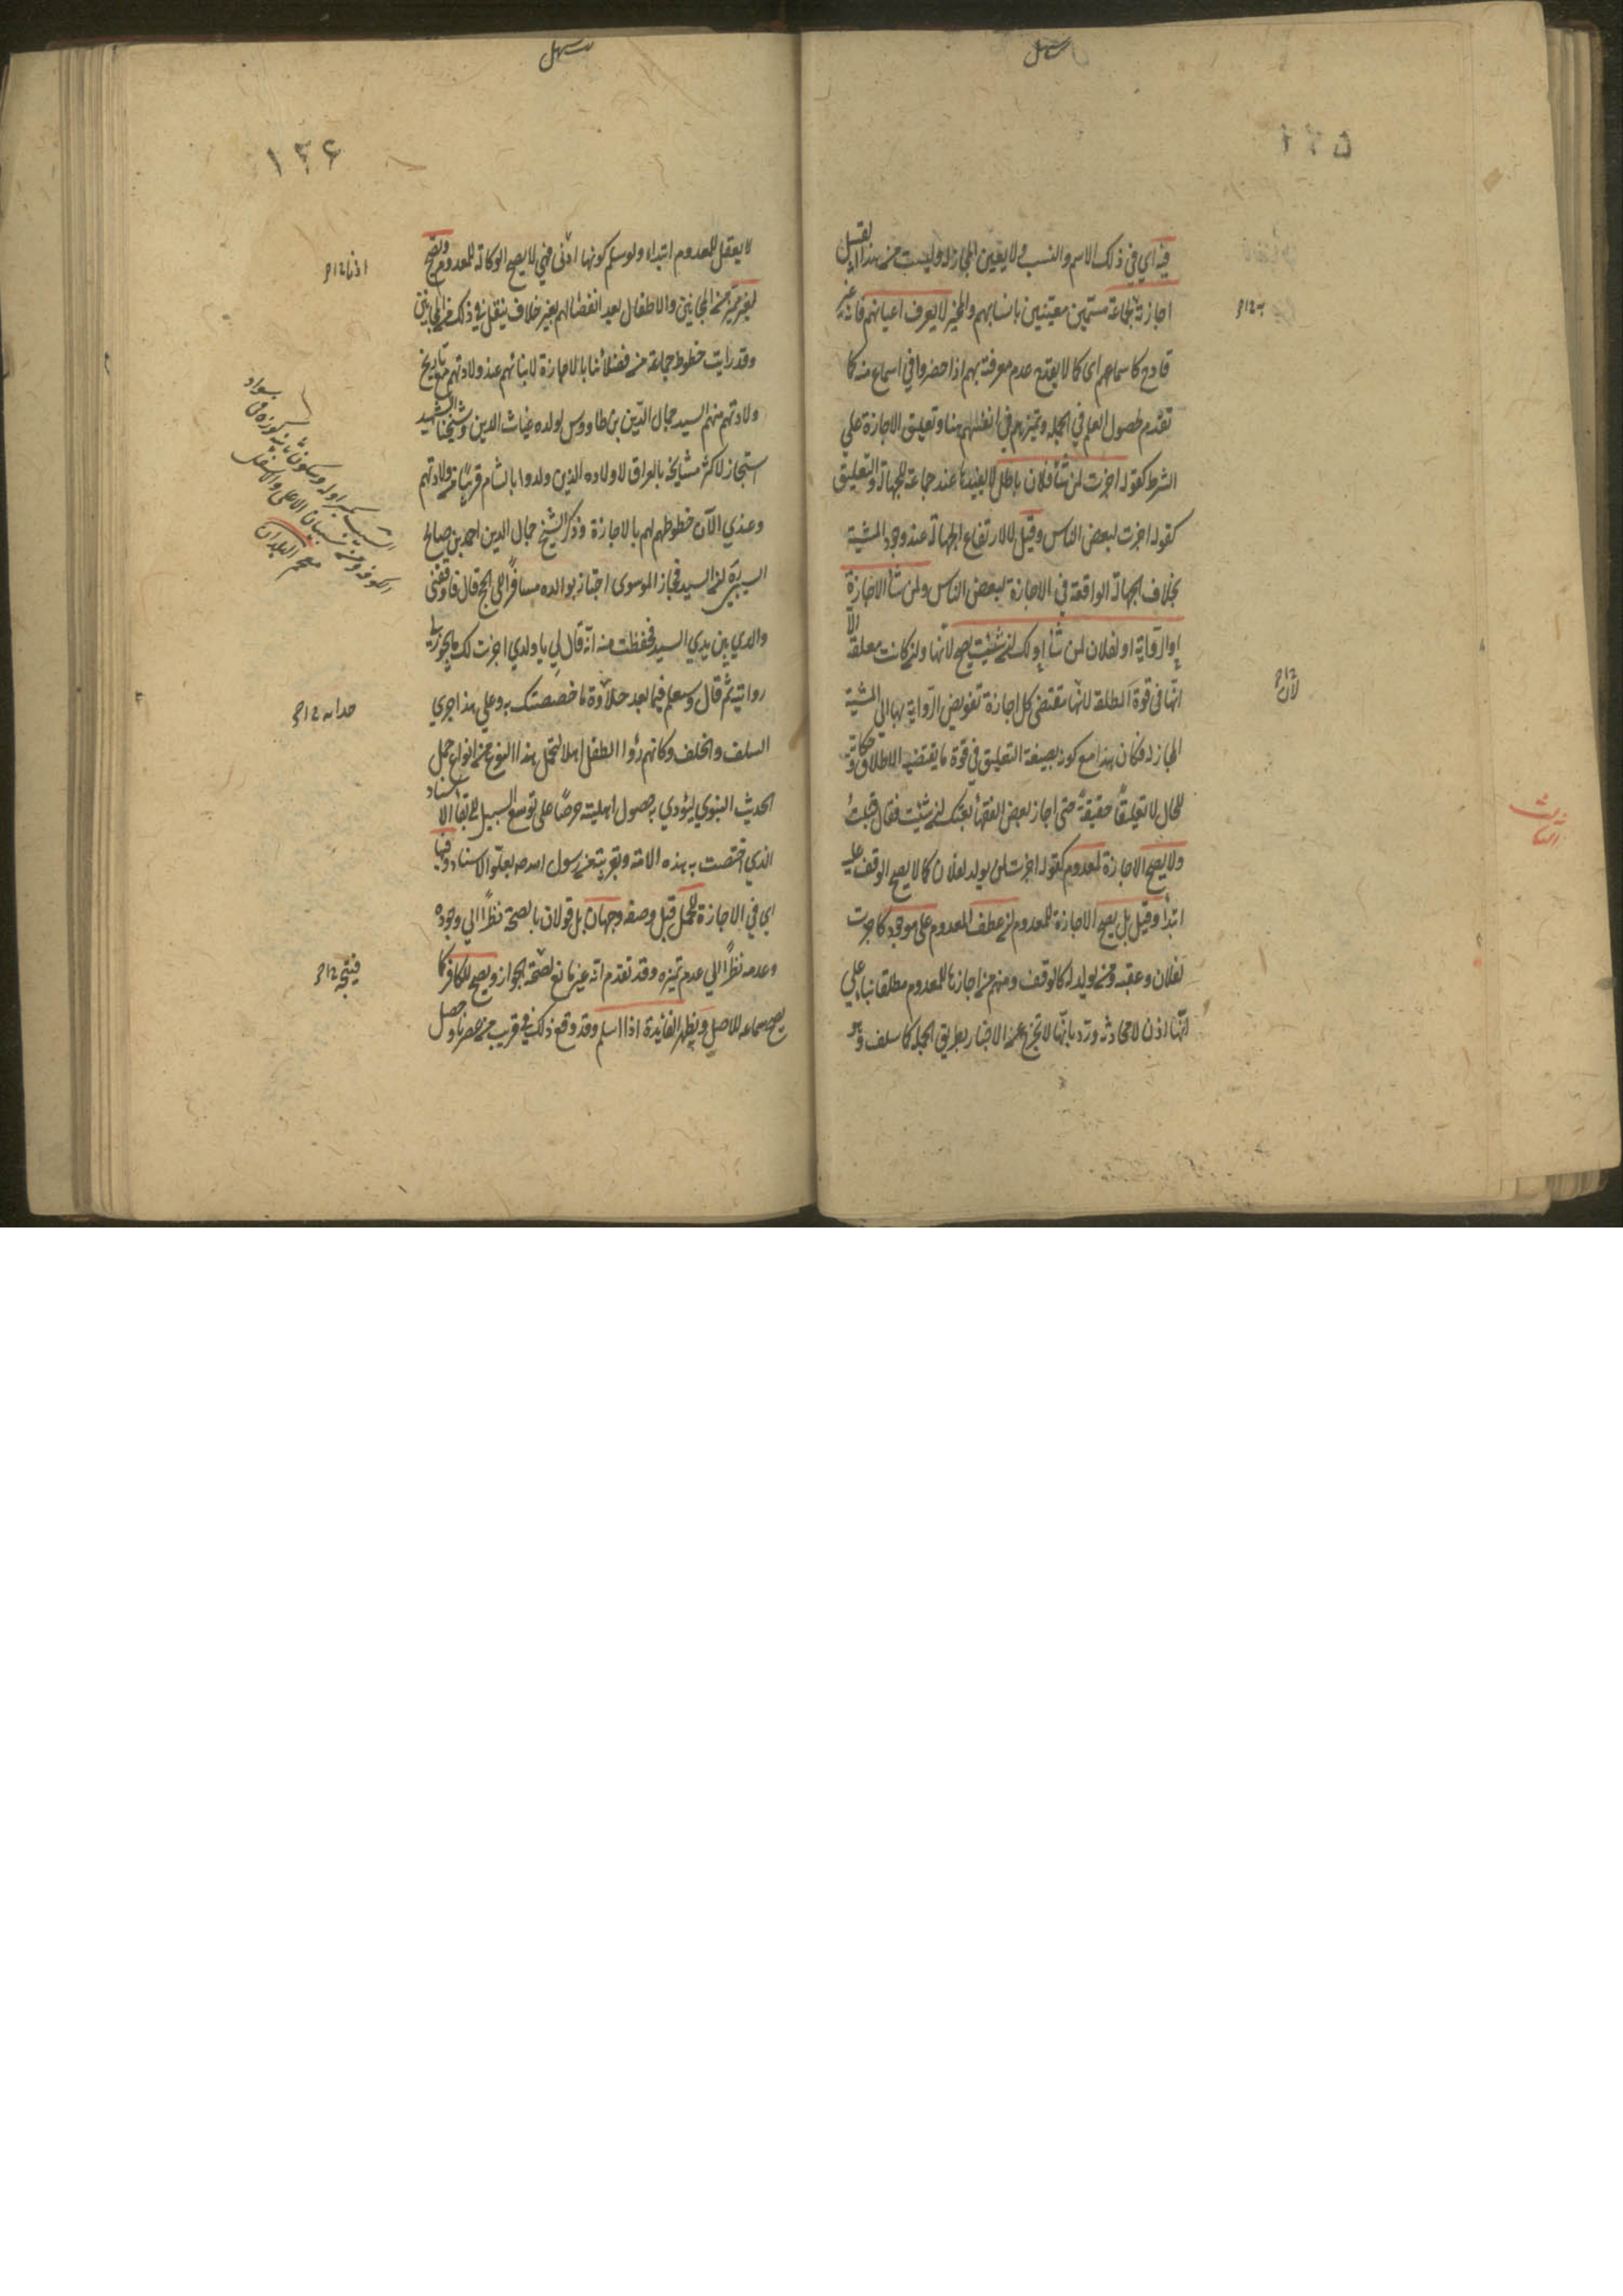 سهل
١٢٥
فيه اي في ذلك الاسم والنسب ولا يعين المجاز له وليست من هذا القبيل
اجازته لجماعة مسمين معينين بانسابهم والمجيز لا يعرف اعيانهم فانه غير
قادح كما سماعهم اى كما لا يقدح عدم معرفته بهم اذا حضروا في اسماع منه كما
تقدم لحصول العلم في الجملة وتميزهم في انفسهم هنا وتعليق الاجازة على
الشرط كقوله اجزت لمن شاء فلان باطل لا يفيدنا عند جماعة للجهالة والتعليق
كقوله اجزت لبعض الناس وقيل لا لارتفاع الجهالة عند وجود المشية
بخلاف الجهالة الواقعة في الاجازة لبعض الناس ولمن شاء الاجازة
او الرواية او لفلان لمن شاء او لك ان شئت يصح لانها وان كانت معلقة الا
انها فى قوة المطلقة لانها مقتضى كل اجازة تفويض الرواية بها الى مشية
المجاز له فكان هذا مع كونه بصيغة التعليق في قوة ما يقتضيه الاطلاق وحكاية
للحال لا تعليقا حقيقة حتى اجاز بعض الفقهاء بعتك ان شئت فقال قبلت
ولا يصح الاجازة لمعدوم كقوله اجزت لمن يولد لفلان كما لا يصح الوقف عليه
ابتداء وقيل بل يصح الاجازة للمعدوم ان عطف المعدوم على موجود كاجزت
لفلان وعقبه ومن يولد له كالوقف ومنهم من اجازها للمعدوم مطلقا بناء على
انها اذن لا محادثة ورد بانها لا تخرج عن الاخبار بطريق الجملة كما سلف وهو
به ١٢ح
لان ١٢ح
سهل
١٢۶
لا يعقل للمعدوم ابتداء ولو سلم كونها اذنى فهي لا يصح الوكالة للمعدوم وتصح
لغير مميز من المجانين والاطفال بعد انفصالهم بغير خلاف ينقل في ذلك من المجانين
وقد رايت خطوط جماعة من فضلائنا بالاجازة لابنائهم عند ولادتهم مع تاريخ
ولادتهم منهم السيد جمال الدين بن طاووس لولده غياث الدين وشيخنا الشهيد
استجاز لاكثر مشايخه بالعراق لاولاده الذين ولدوا بالشام قريبا من ولادتهم
وعندي الآن خطوطهم لهم بالاجازة وذكر الشيخ جمال الدين احمد بن صالح
السيبي ره ان السيد فخار الموسوى اجتاز بوالده مسافرا الى الحج قال فاوقفنى
والدي بين يدي السيد فحفظت منه انه قال لي يا ولدي اجزت لك ما يجوز لي
روايته ثم قال وستعلم فيما بعد حلاوة ما خصصتك به وعلى هذا جرى
السلف والخلف وكانهم رؤوا الطفل اهلا لتحمل هذا النوع من انواع حمل
الحديث النبوي ليؤدي به حصول اهليته حرصا على توسع السبيل الى بقاء الاسناد
الذي اختصت به هذه الامة وتقريبته من رسول الله صم بعلو الاسناد وفيها
اى في الاجازة للحمل قبل وضعه وجهان بل قولان بالصحة نظرا الى وجوده
وعدمه نظرا الى عدم تميزه وقد تقدم انه غير مانع لصحة الجواز ويصح للكافر كما
يصح سماعه للاصل ويظهر الفائدة اذا اسلم وقد وقع ذلك في قريب من عصرنا وحصل
اذنا ١٢ح
معجم البلدان